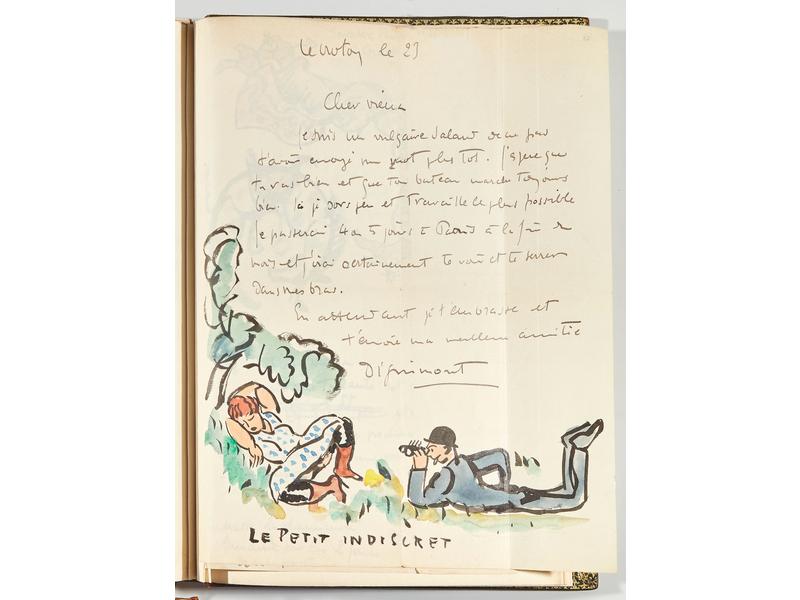 Le Crotoy le 23
Cher vieux
Je suis un vulgaire salaud de ne pas
t'avoir envoyé un mot plus tôt. J'espère que
tu vas bien et que ton bateau marche toujours
bien. Ici je sors peu et travaille le plus possible
Je passerai 4 ou 5 jours à Paris à la fin du
mois et j'irai certainement te voir et te serrer
dans mes bras.
En attendant je t'embrasse et
t'envoie ma meilleure amitié
Dignimont
LE PETIT INDISCRET